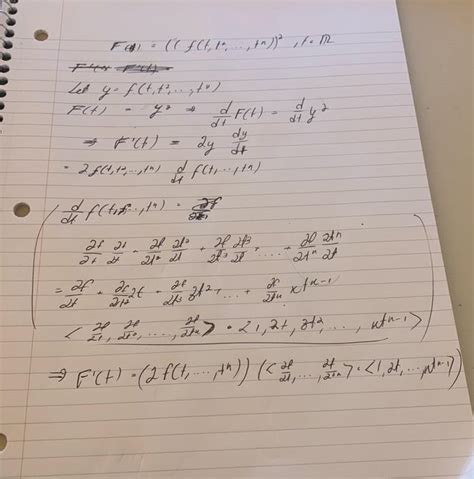 F(t) = ((f(t,t²,...,tⁿ))², t∈ℝ
Let y = f(t,t²,...,tⁿ)
F(t) = y² ⇒ d/dt F(t) = d/dt y²
⇒ F'(t) = 2y dy/dt
= 2f(t,t²,...,tⁿ) d/dt f(t,...,tⁿ)
d/dt f(t,t²,...,tⁿ) =
∂f/∂t ∂t/∂t + ∂f/∂t² ∂t²/∂t + ∂f/∂t³ ∂t³/∂t + ... + ∂f/∂tⁿ ∂tⁿ/∂t
= ∂f/∂t + ∂f/∂t² 2t + ∂f/∂t³ 3t² + ... + ∂f/∂tⁿ ntⁿ⁻¹
<∂f/∂t, ∂f/∂t², ..., ∂f/∂tⁿ> • <1, 2t, 3t², ..., ntⁿ⁻¹>
⇒ F'(t) = (2f(t,...,tⁿ)) (<∂f/∂t, ..., ∂f/∂tⁿ> • <1, 2t, ..., ntⁿ⁻¹>)